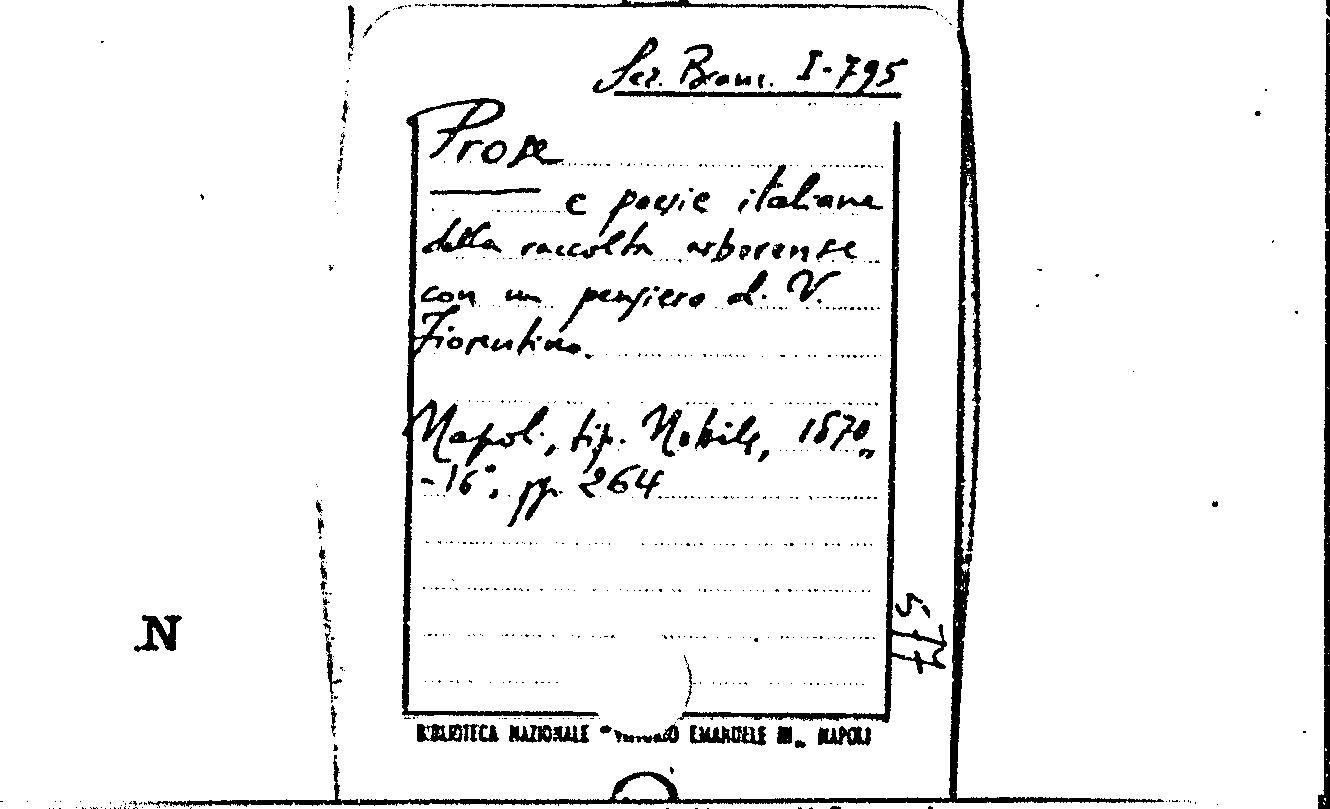 Sez. Branc. I-795
Prose
e poesie italiane
della raccolta arborense
con un pensiero di V.
Fiorentino.
Napoli, tip. Nobile, 1870,,
-16°, pp. 264
577
N
BIBLIOTECA NAZIONALE "VITTORIO EMANUELE III„ NAPOLI